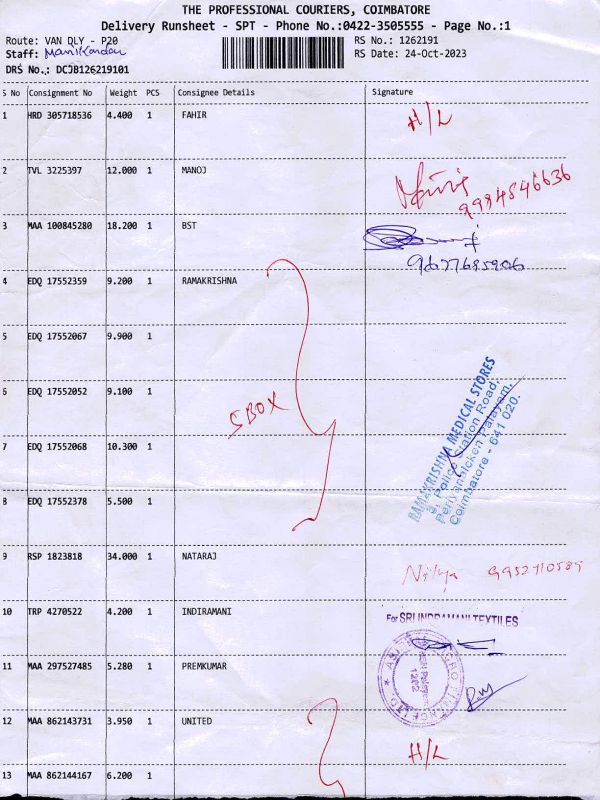 THE PROFESSIONAL COURIERS, COIMBATORE
Delivery Runsheet - SPT - Phone No.:0422-3505555 - Page No.:1
Route: VAN DLY - P20
RS No.: 1262191
Staff: Manikandan
RS Date: 24-Oct-2023
DRS No.: DCJB126219101
S No Consignment No Weight PCS Consignee Details Signature
1 HRD 305718536 4.400 1 FAHIR H/L
2 TVL 3225397 12.000 1 MANOJ
9994846636
3 MAA 100845280 18.200 1 BST
9677695906
4 EDQ 17552359 9.200 1 RAMAKRISHNA
5 EDQ 17552067 9.900 1
6 EDQ 17552052 9.100 1
5 BOX
7 EDQ 17552068 10.300 1
8 EDQ 17552378 5.500 1
RAMAKRISHNA MEDICAL STORES
Police Station Road,
Periyanaicken Palayam,
Coimbatore - 641 020.
9 RSP 1823818 34.000 1 NATARAJ
Nithya
10 TRP 4270522 4.200 1 INDIRAMANI
For SRI INDRAMANI TEXTILES
11 MAA 297527485 5.280 1 PREMKUMAR
12 MAA 862143731 3.950 1 UNITED
H/L
13 MAA 862144167 6.200 1